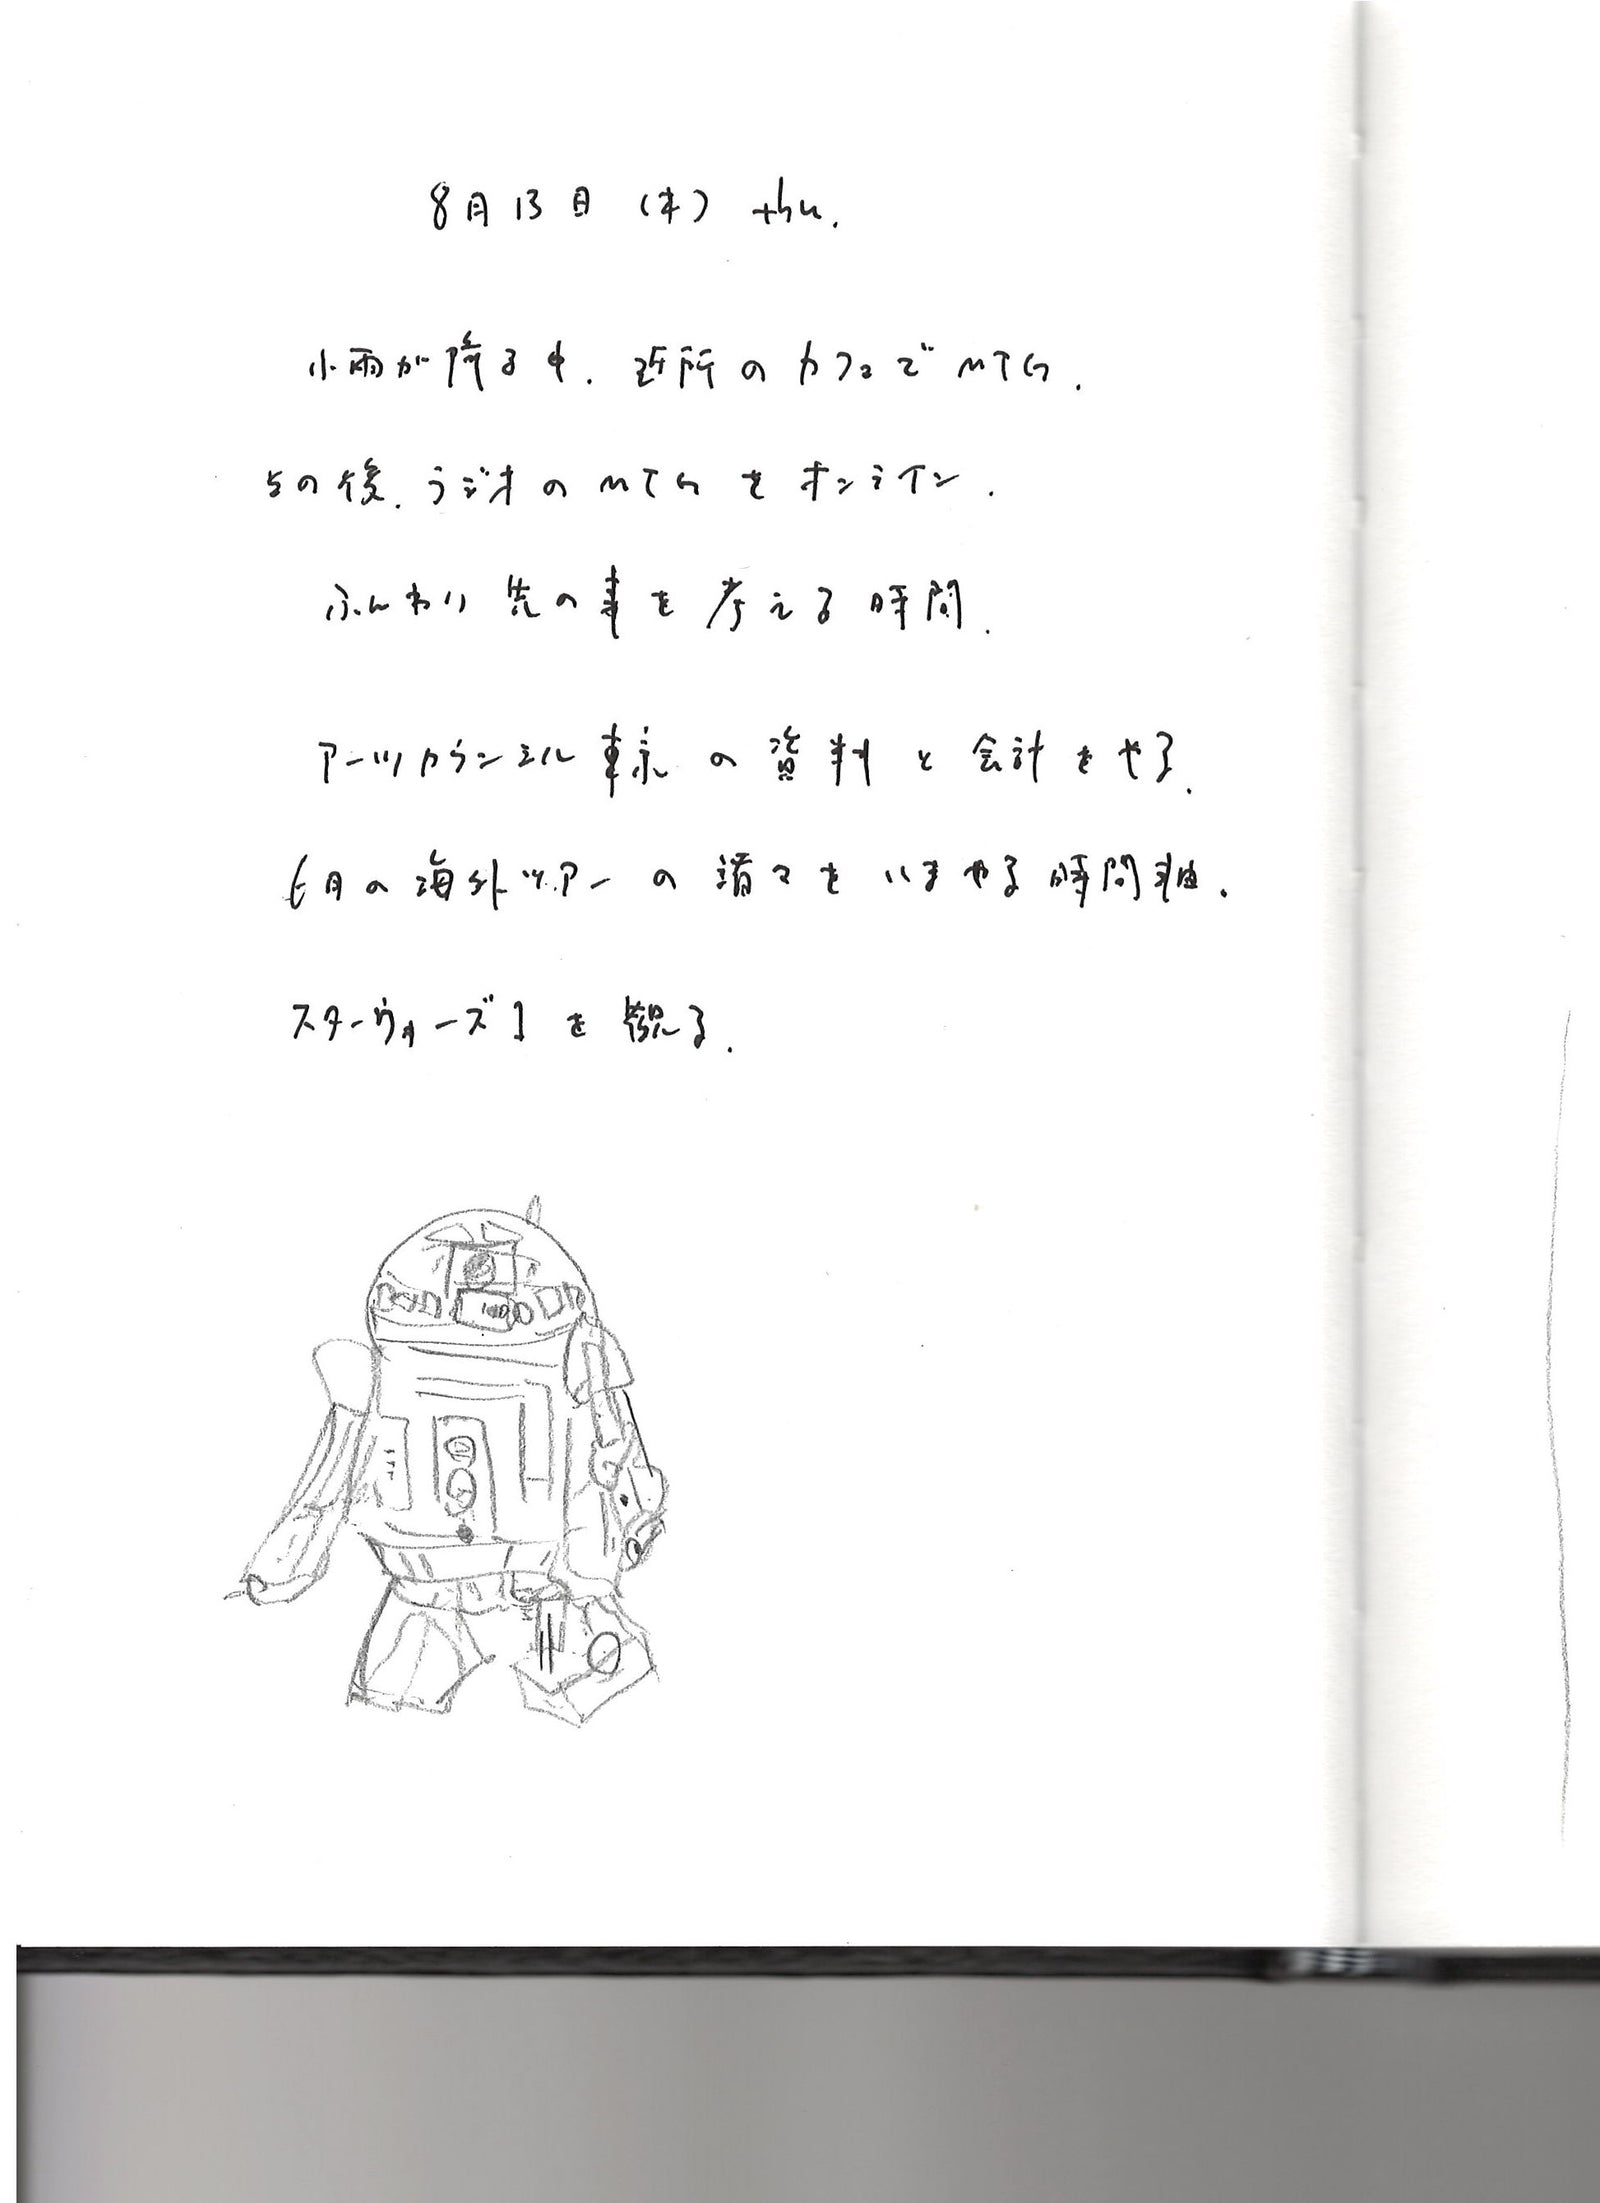 8月13日 (木) thu.
小雨が降る中. 近所のカフェでMTG.
その後. ラジオのMTGをオンライン.
ふんわり先の事を考える時間.
アーツカウンシル東京の資料と会計をやる.
6月の海外ツアーの諸々をいまやる時間軸.
スターウォーズ1を観る.